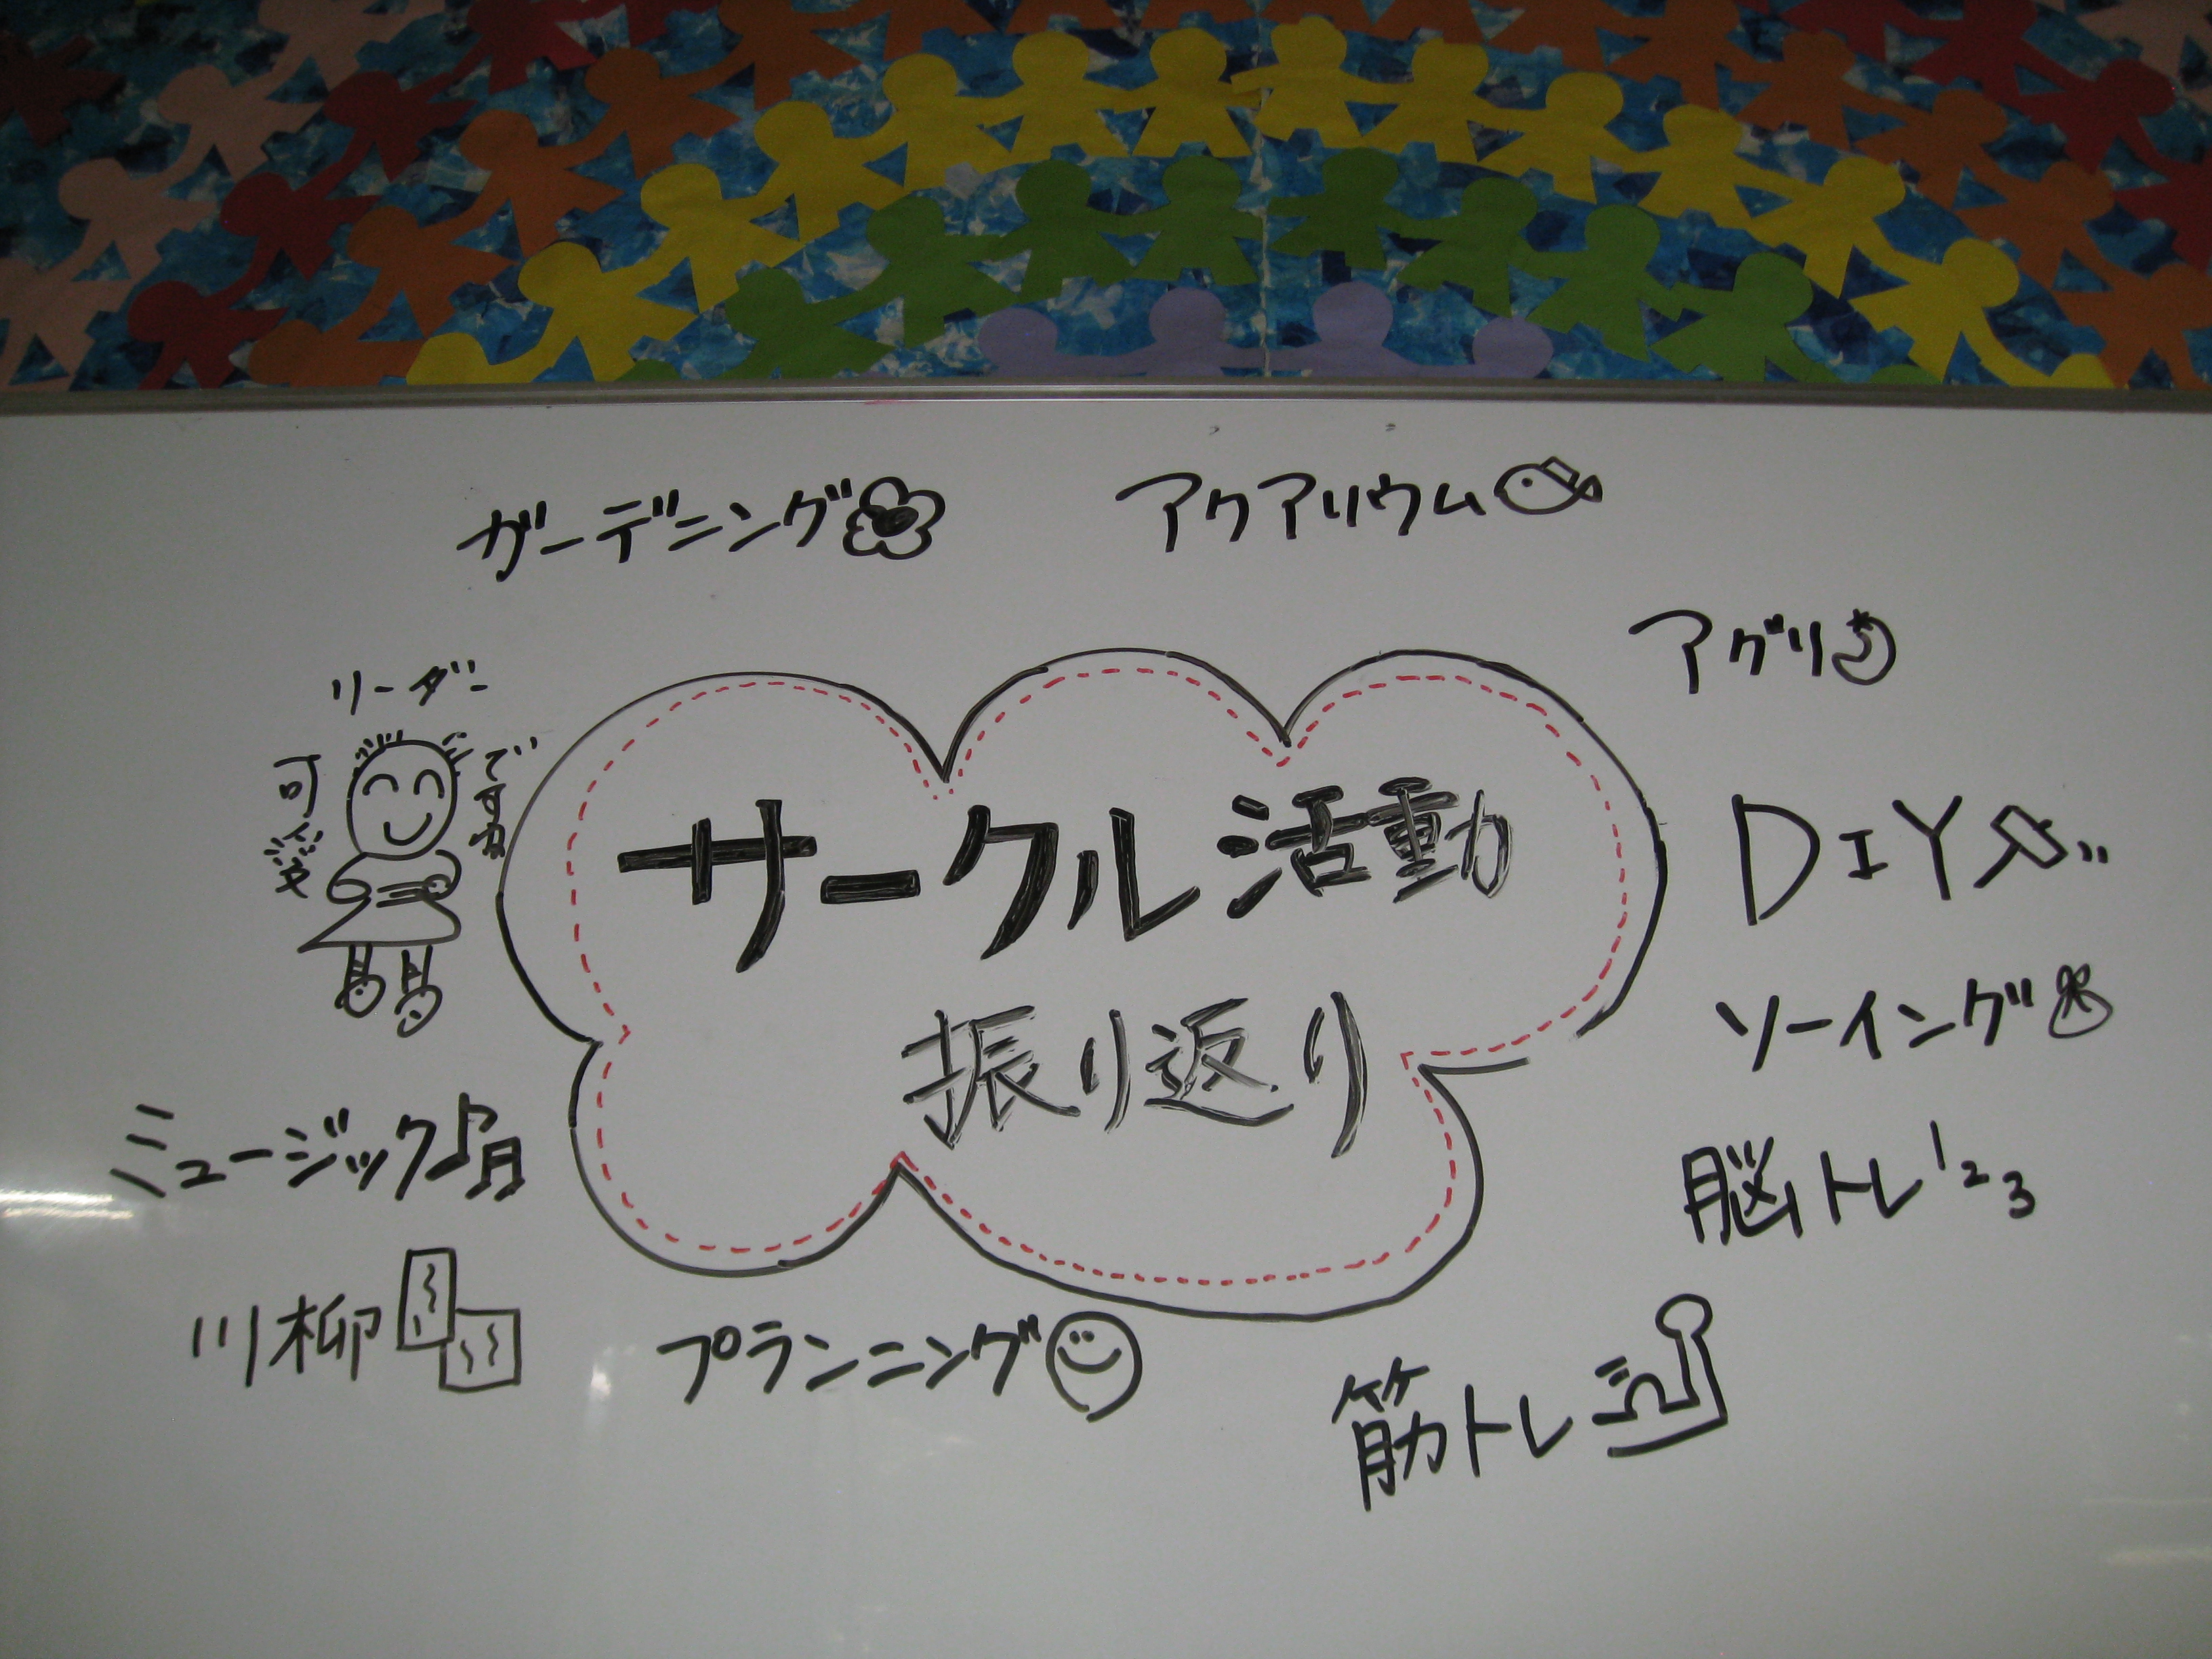 ガーデニング
アクアリウム
アグリ
リーダー
可愛
ですね
サークル活動
振り返り
DIY
ソーイング
ミュージック
脳トレ 1 2 3
川柳
プランニング
筋トレ